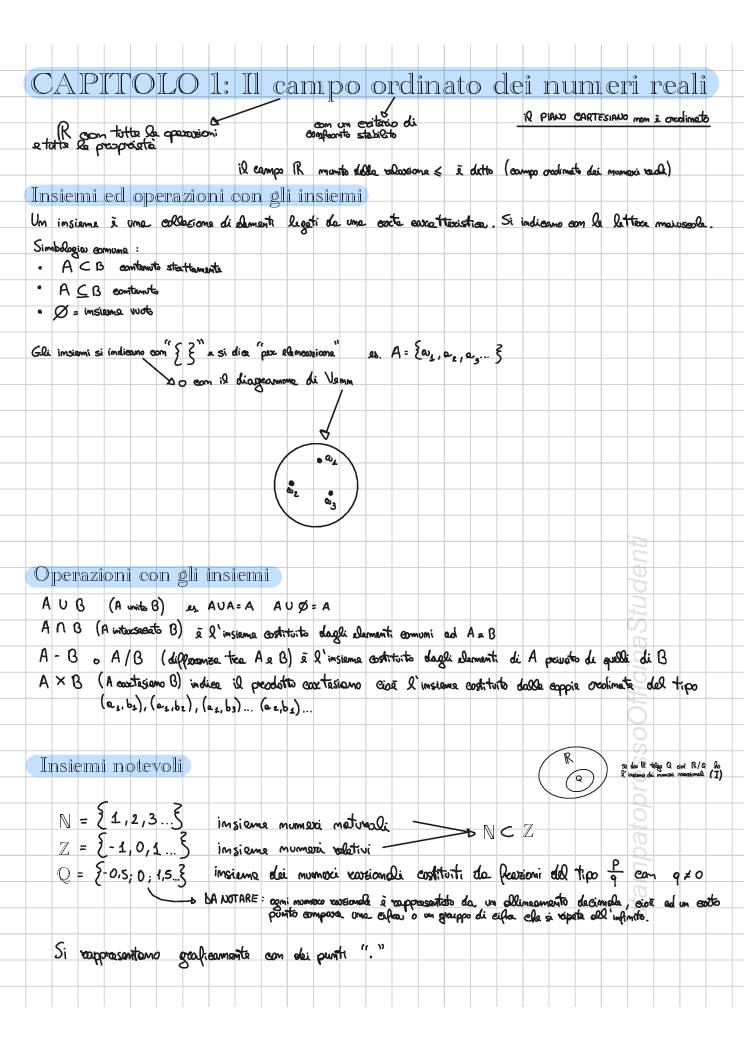 CAPITOLO 1: Il campo ordinato dei numeri reali
ℝ con tutte le operazioni
e tutte le proprietà
con un criterio di
confronto stabilito
il PIANO CARTESIANO non è ordinato
il campo ℝ munito della relazione ≤ è detto (campo ordinato dei numeri reali)
Insiemi ed operazioni con gli insiemi
Un insieme è una collezione di elementi legati da una certa caratteristica. Si indicano con le lettere maiuscole.
Simbologia comune :
• A ⊂ B contenuto strettamente
• A ⊆ B contenuto
• Ø = insieme vuoto
Gli insiemi si indicano con "{ }" e si dice "per elencazione" es. A = {a₁, a₂, a₃... }
o con il diagramma di Venn
a₁
a₂
a₃
Operazioni con gli insiemi
A ∪ B (A unito B) es A∪A=A A∪Ø=A
A ∩ B (A intersecato B) è l'insieme costituito dagli elementi comuni ad A e B
A - B o A/B (differenza tra A e B) è l'insieme costituito dagli elementi di A privato di quelli di B
A × B (A cartesiano B) indica il prodotto cartesiano cioè l'insieme costituito dalle coppie ordinate del tipo
(a₁,b₁), (a₁,b₂), (a₁,b₃)... (a₂,b₁)...
Insiemi notevoli
ℝ
Q
se da ℝ tolgo Q cioè ℝ/Q ho
l'insieme dei numeri irrazionali (I)
ℕ = {1,2,3...} insieme numeri naturali
ℤ = {-1,0,1...} insieme numeri relativi
ℕ ⊂ ℤ
ℚ = {-0,5; 0; 1,5...} insieme dei numeri razionali costituiti da frazioni del tipo p/q con q≠0
DA NOTARE: ogni numero razionale è rappresentato da un allineamento decimale, cioè ad un certo
punto compare una cifra o un gruppo di cifre che si ripete all'infinito.
Si rappresentano graficamente con dei punti "."
ampatopressoOfficinaStudenti